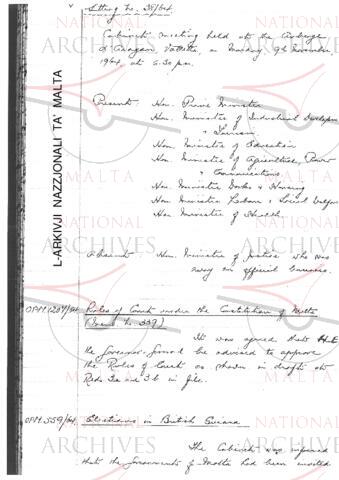 Sitting No. 38/64.
Cabinet meeting held at the Auberge
d'Aragon, Valletta, on Monday 9th November,
1964 at 6.30 pm.
Present: Hon. Prime Minister
Hon. Minister of Industrial Development
& Tourism
Hon. Minister of Education
Hon. Minister of Agriculture, Power
& Communications
Hon. Minister Works & Housing
Hon. Minister Labour & Social Welfare
Hon. Minister of Health
Absent: Hon. Minister of Justice who was
away on official business.
OPM.1237/64. Rules of Court under the Constitution of Malta
It was agreed that H.E.
the Governor-General be advised to approve
the Rules of Court as shown in drafts at
Red 3a and 3b in file.
OPM.559/64. Elections in British Guiana
The Cabinet was informed
that the Government of Malta had been invited
L-ARKIVJI NAZZJONALI TA' MALTA
NATIONAL
ARCHIVES
MALTA
NATIONAL
ARCHIVES
MALTA
NATIONAL
ARCHIVES